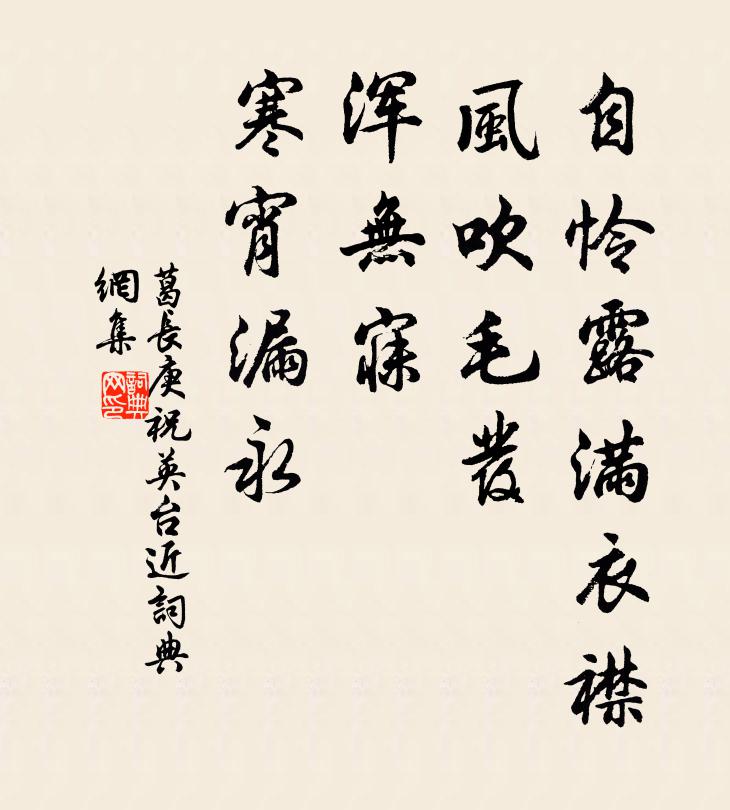 自怜露滿衣襟
風吹毛發
渾無寐
寒宵漏永
葛長庚祝英台近詞典
網集
詞典網印